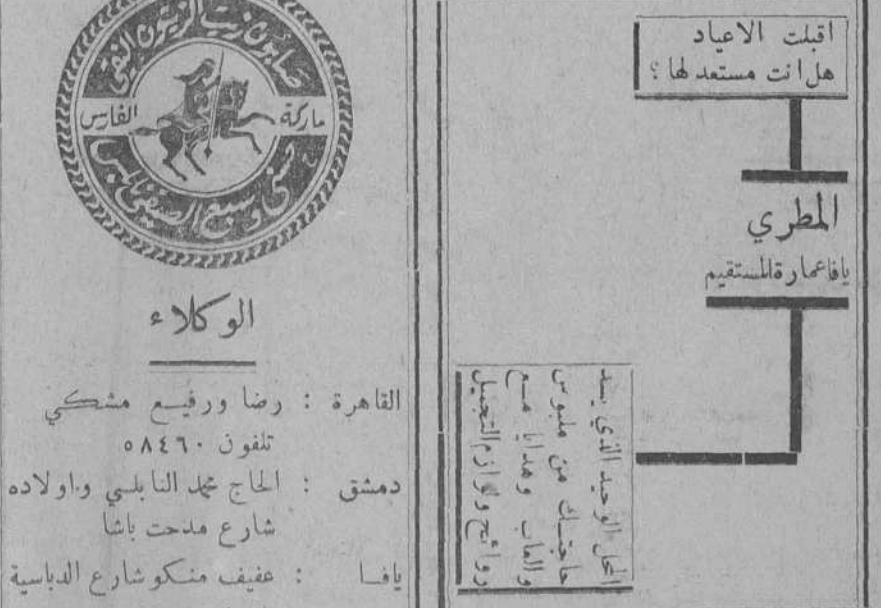 اقبلت الاعياد
هل انت مستعد لها ؟
المطري
يافا عمارة المستقيم
المحل الوحيد الذي يسد
حاجتك من ملبوس
والعاب وهدايا مع
روائح ولوازم التجميل
صابون زيت الزيتون النقي
ماركة الفارس
الوكلاء
القاهرة : رضا ورفيع مشكي
تلفون ٥٨٤٦٠
دمشق : الحاج محمد النابلسي واولاده
شارع مدحت باشا
يافا : عفيف منكو شارع الدباسية